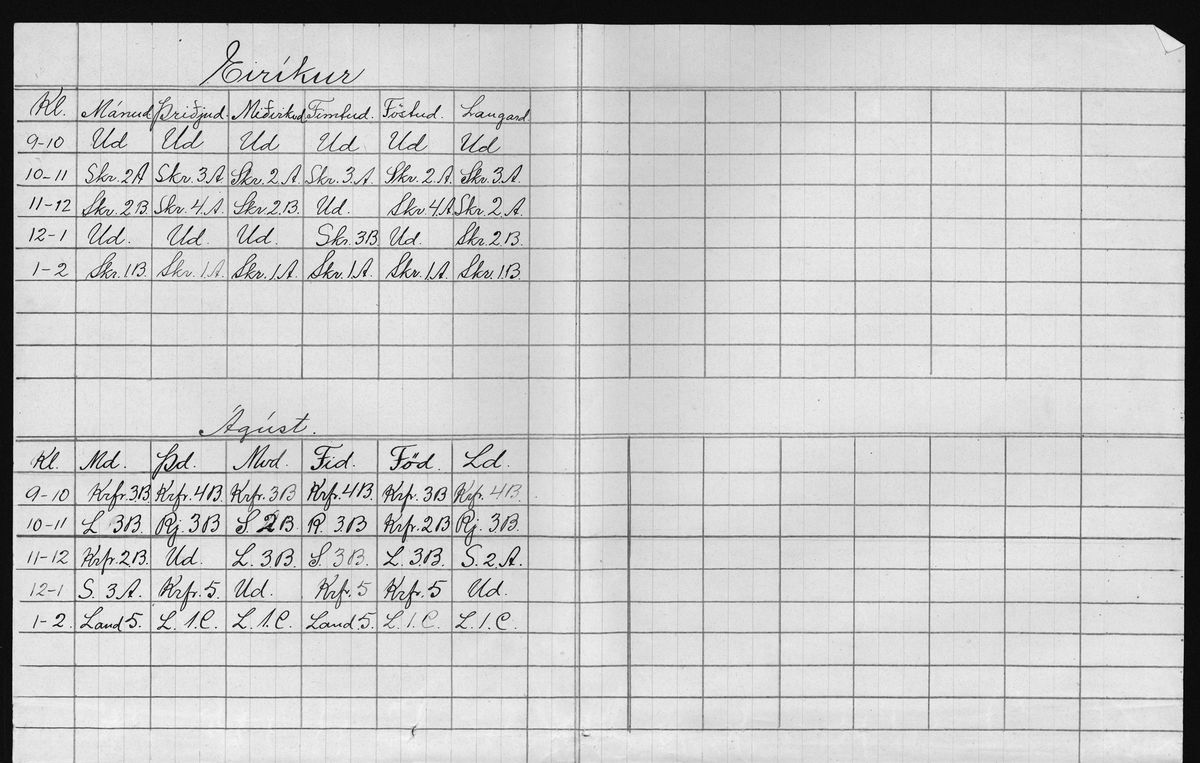 Eiríkur
Kl. Mánud Þriðjud. Miðvikud Fimtud. Föstud. Laugard
9-10 Ud Ud Ud Ud Ud Ud
10-11 Skr. 2 A Skr. 3 A Skr. 2 A Skr. 3 A. Skr. 2 A Skr. 3 A.
11-12 Skr. 2 B. Skr. 4 A. Skr 2 B. Ud. Skr 4 A Skr. 2 A.
12-1 Ud. Ud. Ud. Skr. 3B Ud. Skr. 2 B.
1-2 Skr. 1 B. Skr. 1 A Skr. 1 A Skr. 1 A. Skr. 1 A Skr. 1 B.
Ágúst.
Kl. Md. Þd. Mvd. Fid. Föd. Ld.
9-10 Krfr. 3 B. Krfr. 4 B. Krfr. 3 B Krfr. 4 B. Krfr. 3 B Krfr. 4 B.
10-11 L 3 B. Rj. 3 B S. 2 B. R. 3. B Krfr. 2 B Rj. 3. B.
11-12 Krfr. 2 B. Ud. L. 3. B. S. 3 B. L. 3. B. S. 2. A.
12-1 S. 3 A. Krfr. 5. Ud. Krfr. 5 Krfr. 5 Ud.
1-2. Land 5. L. 1. C. L. 1. C. Land 5. L. 1. C. L. 1. C.